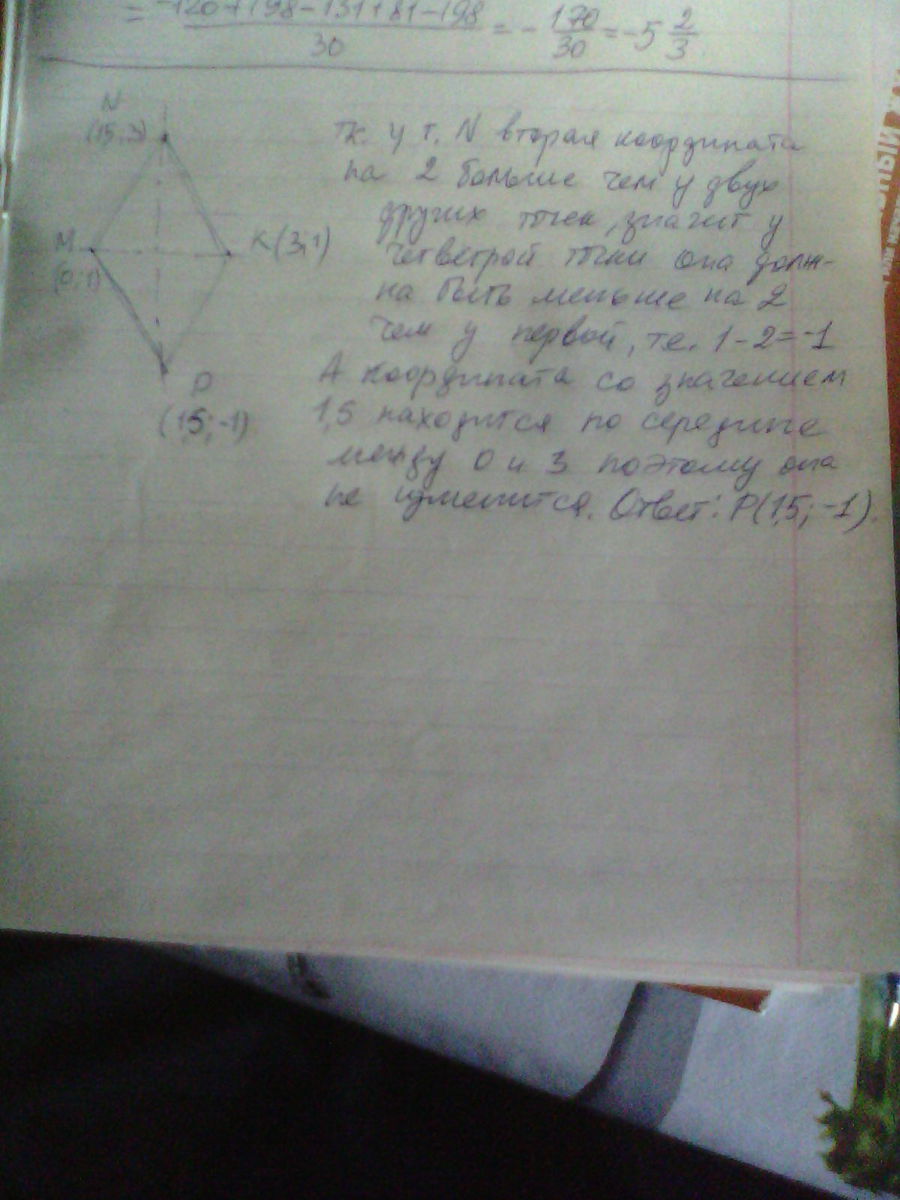 = -120+198-131+81-198 / 30 = - 170/30 = -5 2/3
N
(1,5; 3)
M
(0; 1)
K (3; 1)
(1,5; -1)
Тк. у т. N вторая координата
на 2 больше чем у двух
других точек, значит у
четвертой точки она долж-
на быть меньше на 2
чем у первой, т.е. 1-2=-1
А координата со значением
1,5 находится по середине
между 0 и 3 поэтому она
не изменится. Ответ: P(1,5; -1).